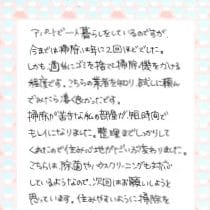 アパートで一人暮らしをしているのですが、
今までは掃除は年に2回ほどでした。
しかも適当にゴミを捨てて掃除機をかける
程度です。こちらの業者を知り、試しに頼ん
でみたら凄く良かったです。
掃除が苦手な私の部屋が短時間で
キレイになりました。整理までしっかりして
くれたので住み心地がだいぶ変わりました。
こちらは、除菌やハウスクリーニングも対応
しているようなので、次回はお願いしようと
思っています。住みやすいように掃除を